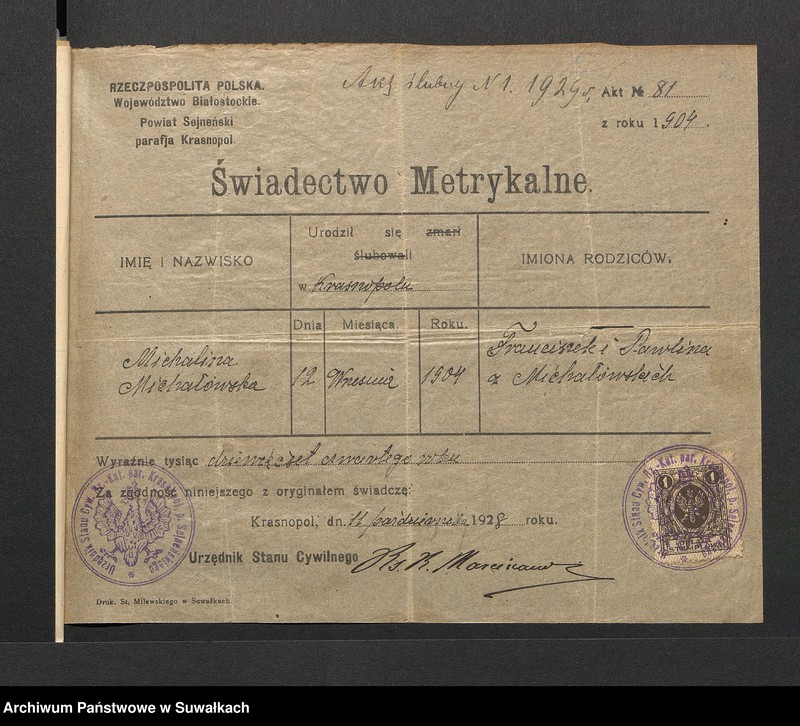 RZECZPOSPOLITA POLSKA.
Województwo Białostockie.
Powiat Sejneński
parafja Krasnopol.
Akt ślubny N 1. 1929 r.
Akt № 81
z roku 1904.
Świadectwo Metrykalne.
IMIĘ I NAZWISKO
Urodził się zmarł
ślubowali
w Krasnopolu
IMIONA RODZICÓW.
Dnia Miesiąca Roku.
Michalina
Michałowska
12 Wresnia 1904
Franciszek i Pawlina
z Michałowskich
Wyraźnie tysiąc dziewięćset czwartego roku
Za zgodność niniejszego z oryginałem świadczę:
Krasnopol, dn. 11 października 1928 roku.
Urzędnik Stanu Cywilnego
Ks. K.
Druk. St. Milewskiego w Suwałkach.
Urzędnik Stanu Cyw. Rz.-Kat. par. Krasnopol, p. Sejneńskiego
1 1
Archiwum Państwowe w Suwałkach